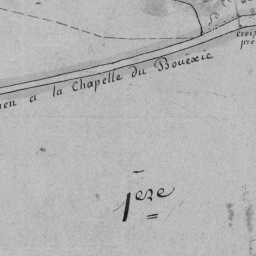 croix
à la Chapelle du Bouëxic
1ere